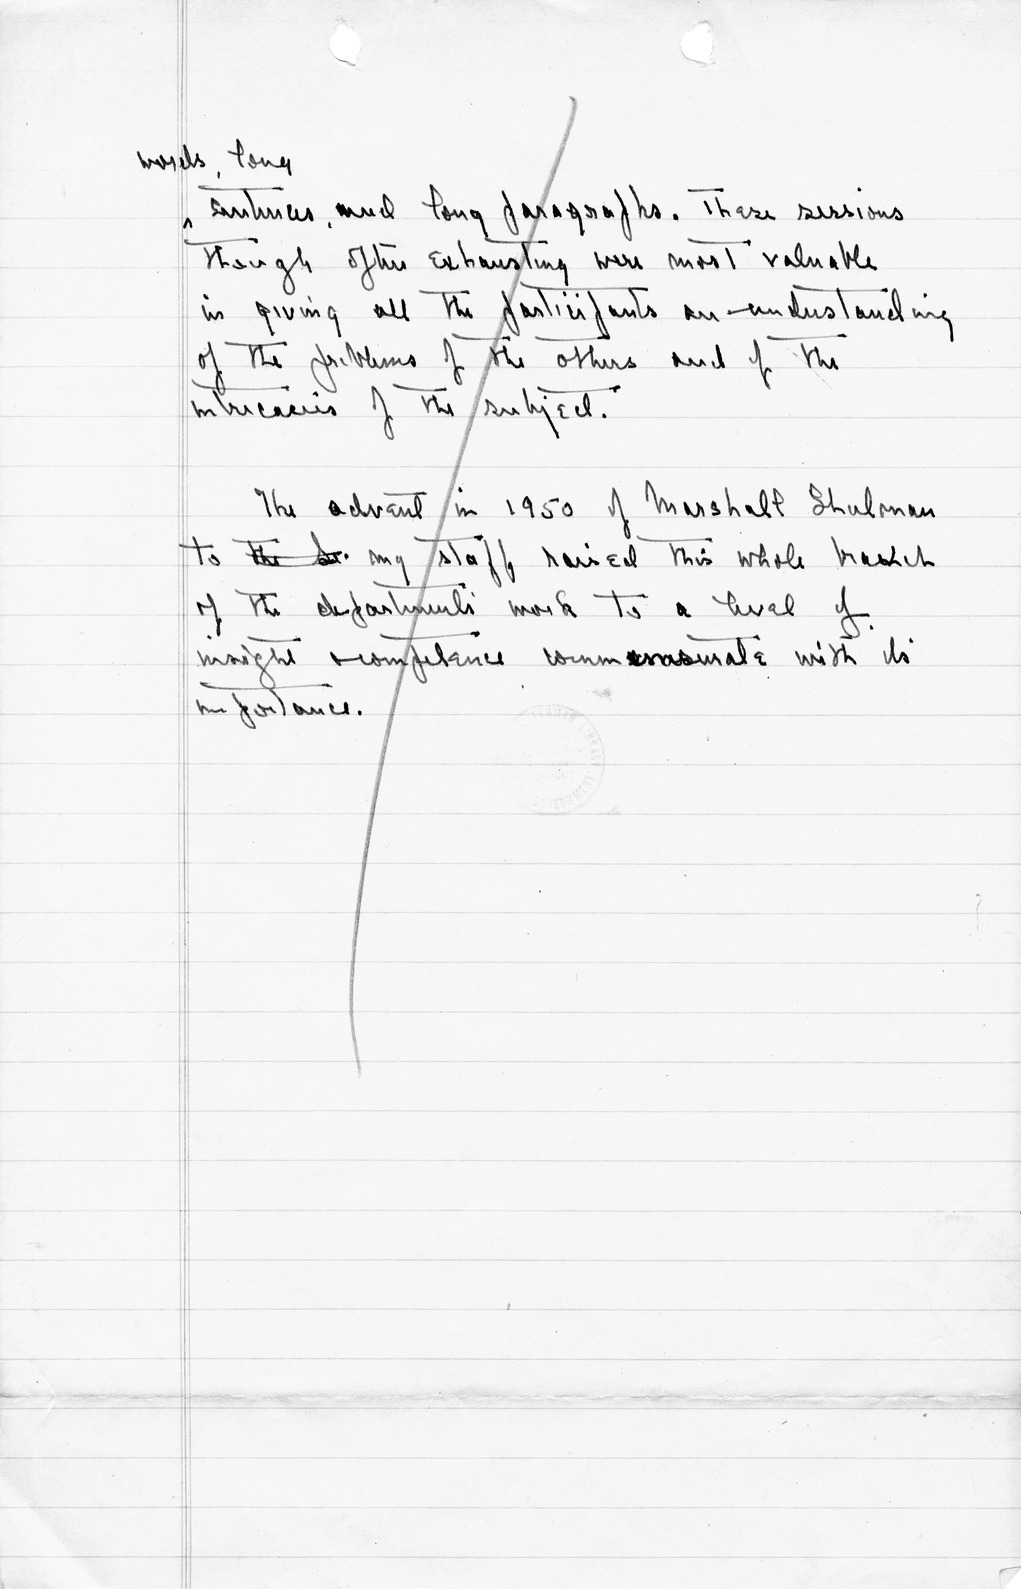 words, long
sentences, and long paragraphs. These sessions
though often exhausting were most valuable
in giving all the participants an understanding
of the problems of the others and of the
intricacies of the subject.
The advent in 1950 of Marshall Shulman
to the Se. my staff raised this whole branch
of the departments work to a level of
insight & competence commensurate with its
importance.
TRUMAN LIBRARY
GOVERNMENT